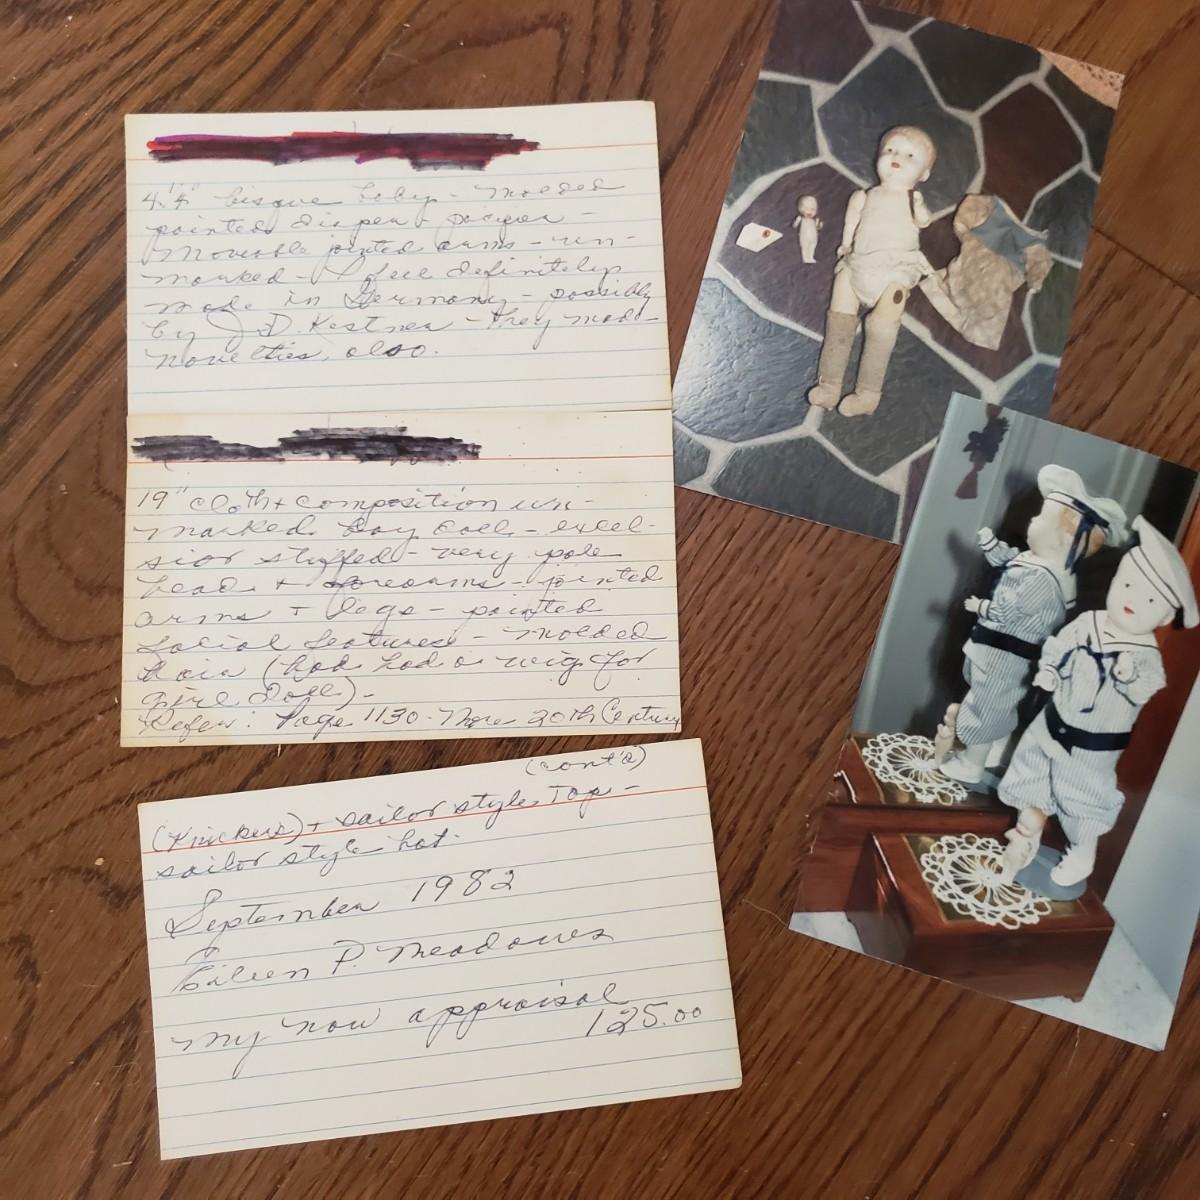 4 1/4" bisque baby - molded
painted diaper + pacifier -
Movable jointed arms - un-
marked - I feel definitely
made in Germany - possibly
by J. D. Kestner - they made
novelties, also.
19" cloth + composition un-
marked boy doll - excel-
sior stuffed - very pale
head + forearms - jointed
arms + legs - painted
facial features - molded
hair (had had a wig for
girl doll) -
Refer: Page 1130 - More 20th Century
(cont'd)
(Knickers) + sailor style top -
sailor style hat.
September 1982
Eileen P. Meadows
My now appraisal
125.00